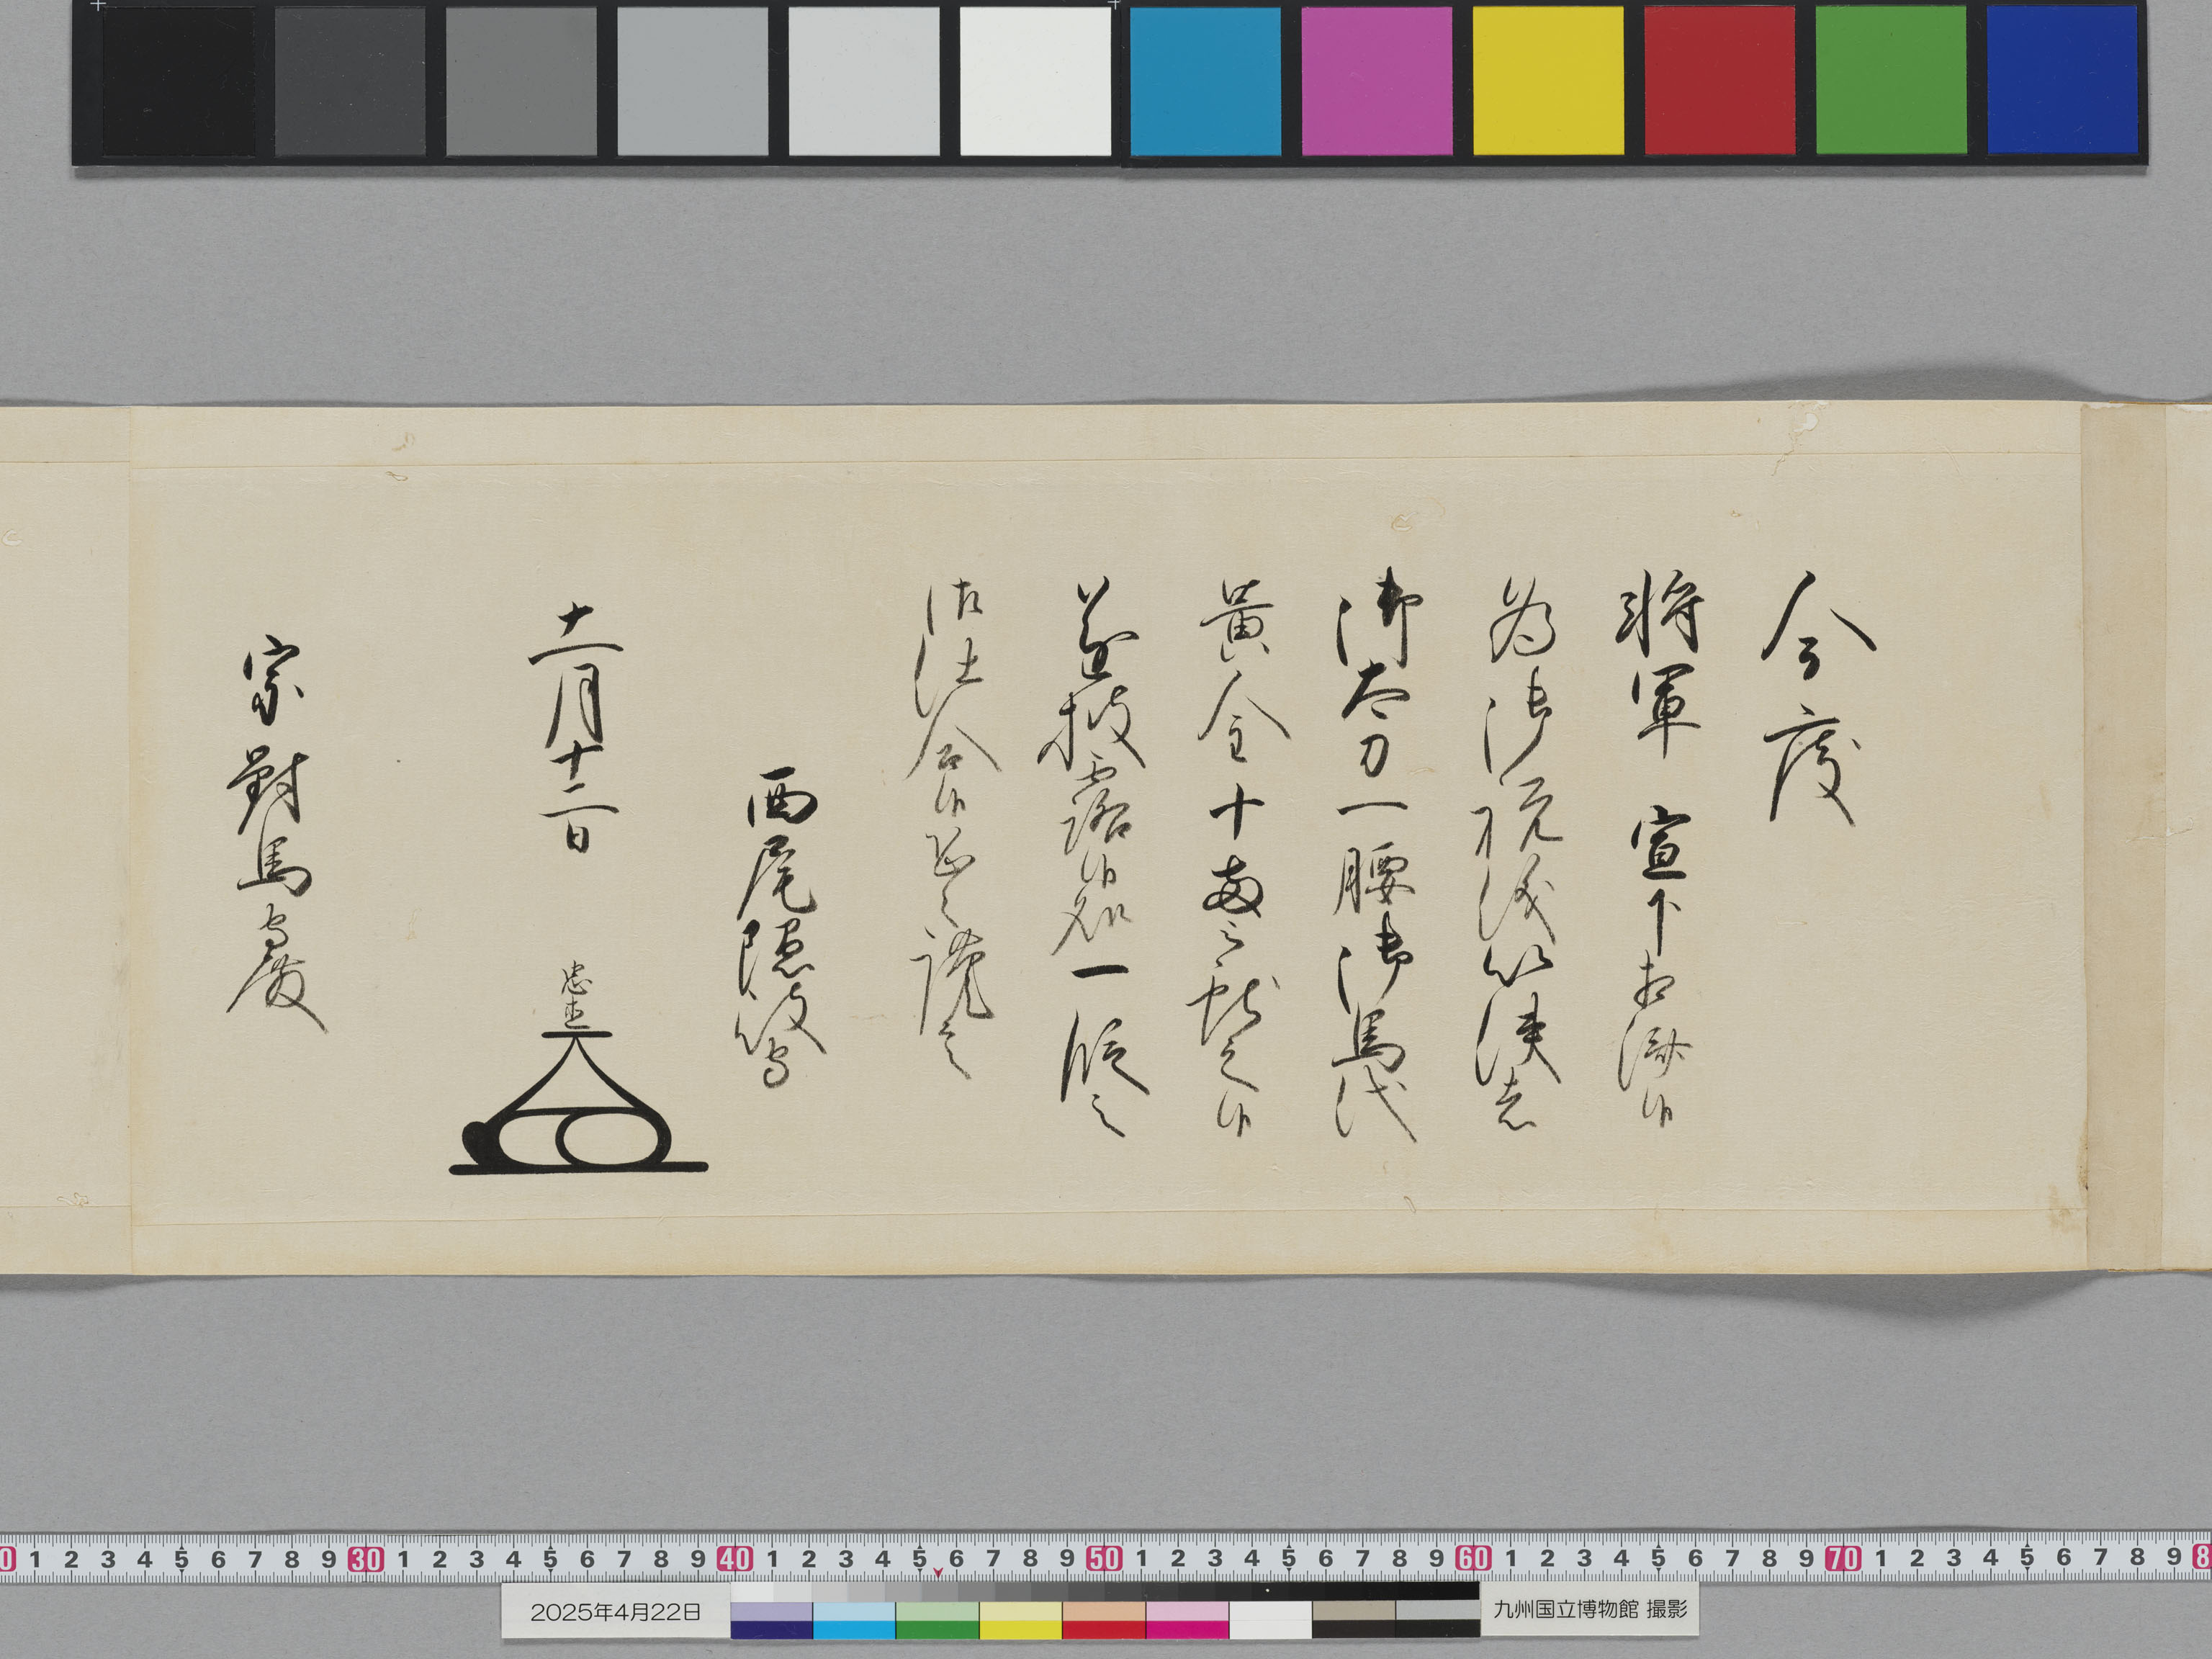 今度
将軍 宣下相済候
為御祝儀以使者
御太刀一腰御馬代
黄金十両被献之候
遂披露候処一段之
御仕合候恐々謹言
西尾隠岐守
十一月十二日 忠尚
宗對馬守殿
0 1 2 3 4 5 6 7 8 9 30 1 2 3 4 5 6 7 8 9 40 1 2 3 4 5 6 7 8 9 50 1 2 3 4 5 6 7 8 9 60 1 2 3 4 5 6 7 8 9 70 1 2 3 4 5 6 7 8 9 8
2025年4月22日
九州国立博物館 撮影